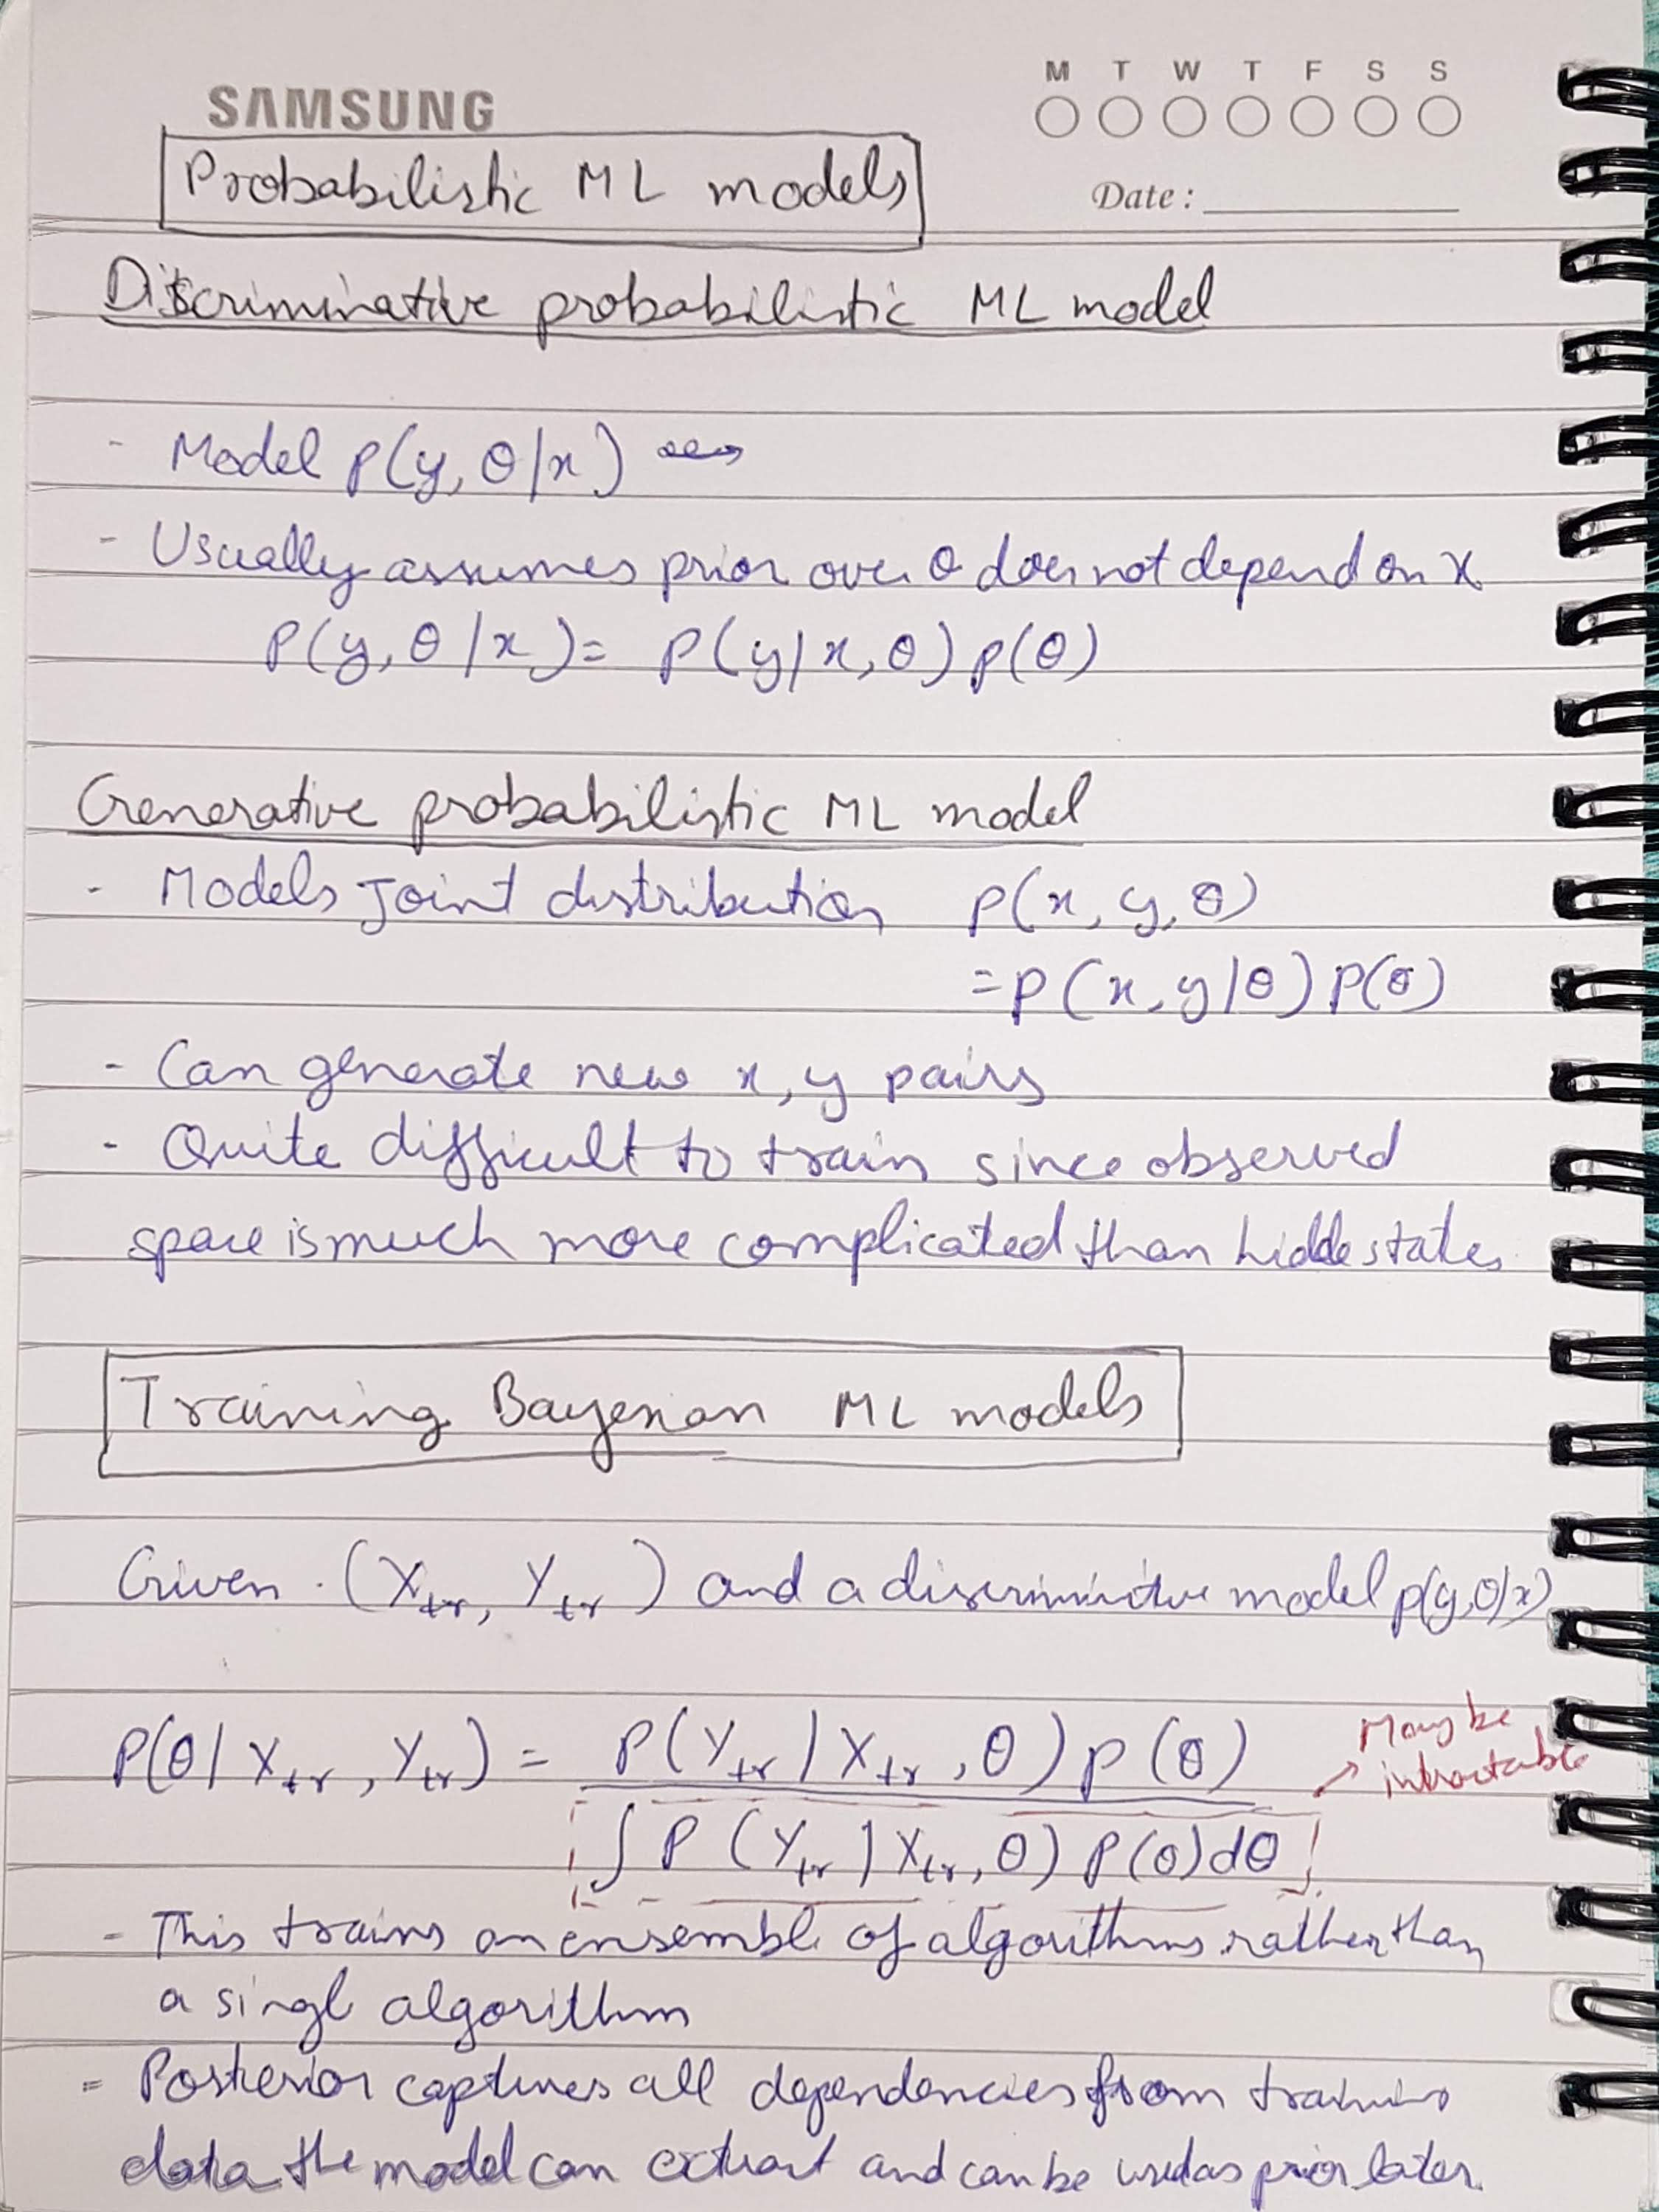 SAMSUNG
M T W T F S S
Probabilistic ML models
Date :
Discriminative probabilistic ML model
- Model p(y, θ/x)
- Usually assumes prior over θ does not depend on x
P(y, θ/x) = P(y/x, θ) p(θ)
Generative probabilistic ML model
- Models Joint distribution p(x, y, θ)
= p(x, y/θ) P(θ)
- Can generate new x, y pairs
- Quite difficult to train since observed
space is much more complicated than hidde states
Training Bayesian ML models
Given (Xtr, Ytr) and a discriminative model p(y,θ/x)
P(θ/Xtr, Ytr) = P(Ytr/Xtr, θ) p(θ)
May be
intractable
∫ P(Ytr/Xtr, θ) P(θ)dθ
- This trains an ensemble of algorithms rather than
a singl algorithm
= Posterior captures all dependencies from training
data the model can extract and can be used as prior later